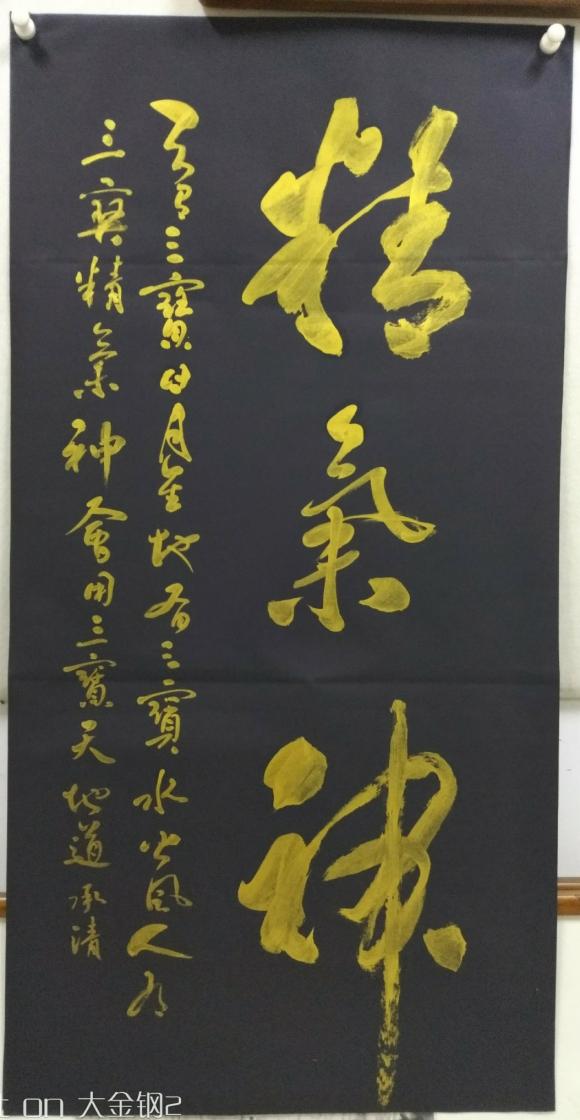 精氣神
天有三寶日月星地有三寶水火風人有
三寶精氣神會用三寶天地道 承清
t on 大金钢2